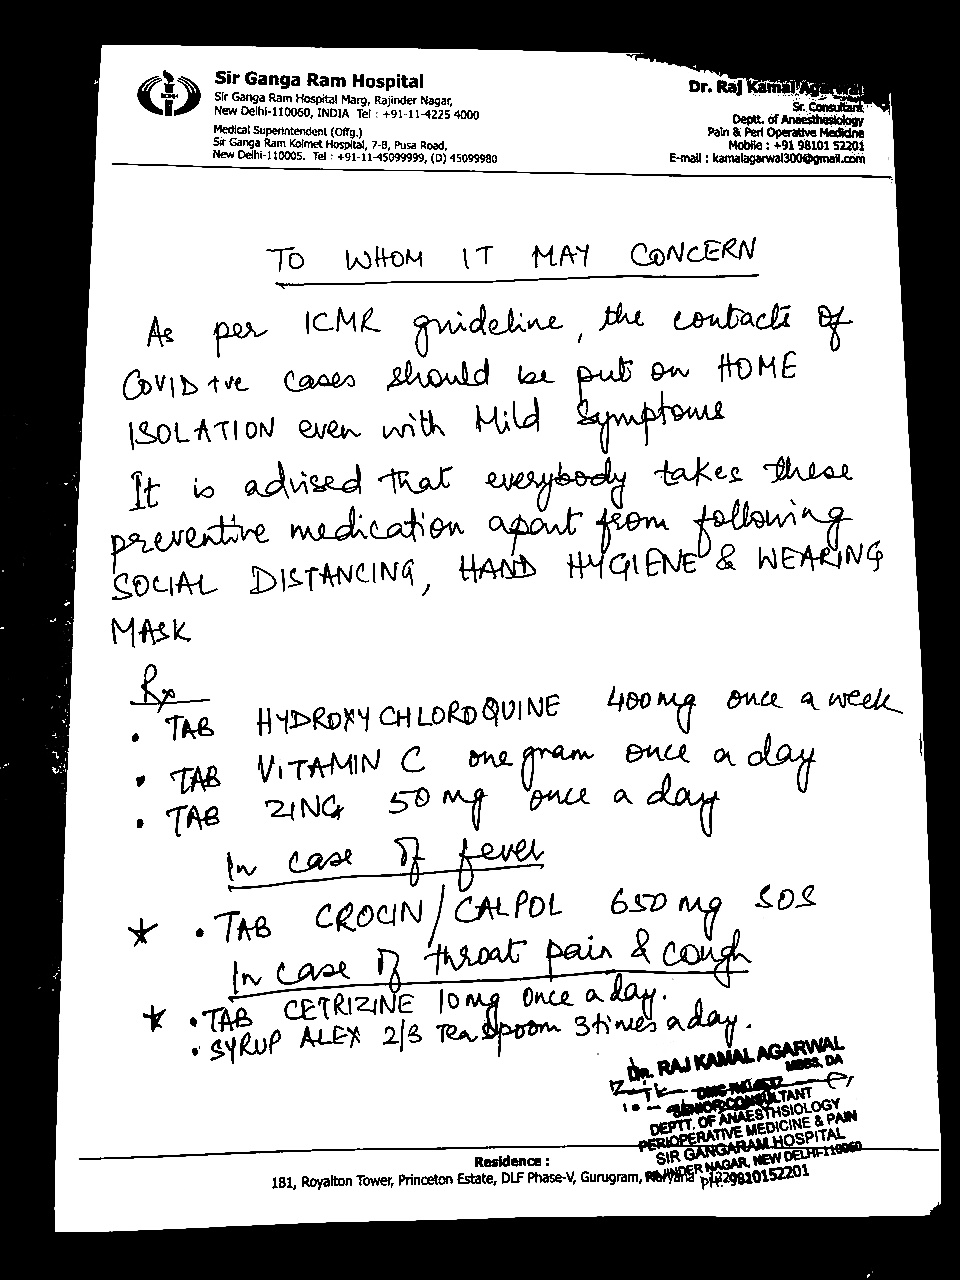 Sir Ganga Ram Hospital
Sir Ganga Ram Hospital Marg, Rajinder Nagar,
New Delhi-110060, INDIA Tel : +91-11-4225 4000
Medical Superintendent (Offg.)
Sir Ganga Ram Kolmet Hospital, 7-B, Pusa Road,
New Delhi-110005. Tel : +91-11-45099999, (D) 45099980
Dr. Raj Kamal Agarwal
Sr. Consultant
Deptt. of Anaesthesiology
Pain & Peri Operative Medicine
Mobile : +91 98101 52201
E-mail : kamalagarwal300@gmail.com
TO WHOM IT MAY CONCERN
As per ICMR guideline, the contacts of
COVID +ve cases should be put on HOME
ISOLATION even with Mild Symptoms
It is advised that everybody takes these
preventive medication apart from following
SOCIAL DISTANCING, HAND HYGIENE & WEARING
MASK
Rx
• TAB HYDROXYCHLOROQUINE 400mg once a week
• TAB VITAMIN C one gram once a day
• TAB ZING 50 mg once a day
In case of fever
★ • TAB CROCIN/CALPOL 650 mg SOS
In case of throat pain & cough
★ • TAB CETRIZINE 10mg once a day.
• SYRUP ALEX 2/3 Tea spoom 3 times a day.
Dr. RAJ KAMAL AGARWAL
MBBS, DA
SENIOR CONSULTANT
DEPTT. OF ANAESTHSIOLOGY
PERIOPERATIVE MEDICINE & PAIN
SIR GANGARAM HOSPITAL
RAJINDER NAGAR, NEW DELHI-110060
PH.:9810152201
Residence :
181, Royalton Tower, Princeton Estate, DLF Phase-V, Gurugram, Haryana